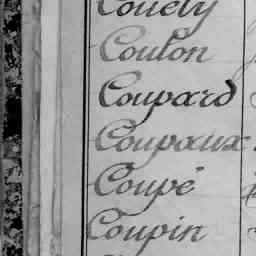 Couety
Coulon
Coupard
Coupaux
Coupé
Coupin